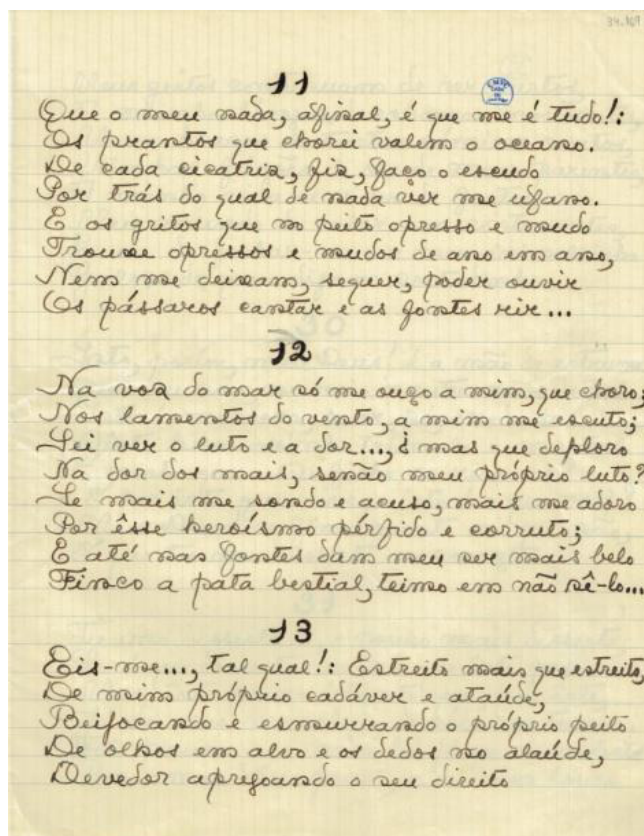 34.109
11
Que o meu nada, afinal, é que me é tudo!:
Os prantos que chorei valem o oceano.
De cada cicatriz, fiz, faço o escudo
Por trás do qual de nada ver me ufano.
E os gritos que no peito opresso e mudo
Trouxe opressos e mudos de ano em ano,
Nem me deixam, sequer, poder ouvir
Os pássaros cantar e as fontes rir...
12
Na voz do mar só me ouço a mim, que choro;
Nos lamentos do vento, a mim me escuto;
Sei ver o luto e a dor..., ¿ mas que deploro
Na dor dos mais, senão meu próprio luto?
Se mais me sondo e acuso, mais me adoro
Por êsse heroísmo pérfido e corruto;
E até nas fontes dum meu ser mais belo
Finco a pata bestial, teimo em não sê-lo...
13
Eis-me..., tal qual!: Estreito mais que estreito,
De mim próprio cadáver e ataúde,
Beijocando e esmurrando o próprio peito
De olhos em alvo e os dedos no alaúde,
Devedor apregoando o seu direito